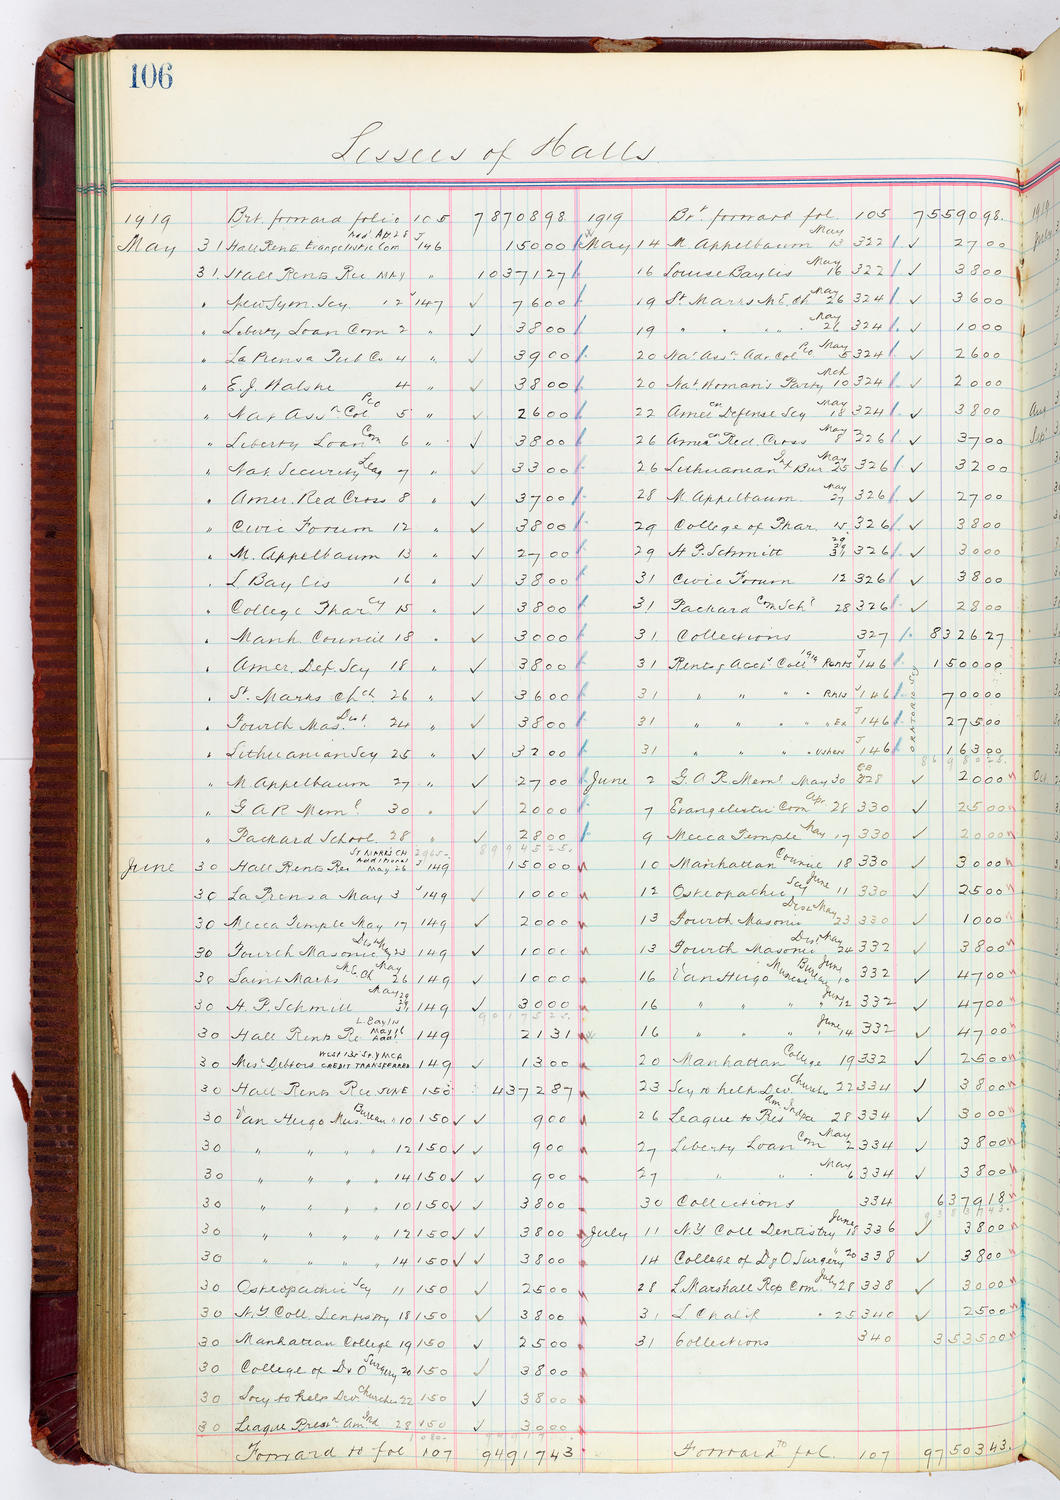 106
Lessees of Halls
1919 Brt. forward folio 105 7870898
May 31 Hall Rents Evangelistic Com Mad. Apr 28 J146 15000
31. Hall Rents Rec MAY " 1037127
" New Sym. Socy 12 J147 ✓ 7600
" Liberty Loan Com 2 " ✓ 3800
" La Prensa Pub Co 4 " ✓ 3900
" E. J. Walshe 4 " ✓ 3800
" Nat Assn Col Peo 5 " ✓ 2600
" Liberty Loan Com 6 " ✓ 3800
" Nat Security Leag 7 " ✓ 3300
" Amer. Red Cross 8 " ✓ 3700
" Civic Forum 12 " ✓ 3800
" M. Appelbaum 13 " ✓ 2700
" L Baylis 16 " ✓ 3800
" College Pharcy 15 " ✓ 3800
" Manh. Council 18 " ✓ 3000
" Amer. Def. Scy 18 " ✓ 3800
" St. Marks Chch 26 " ✓ 3600
" Fourth Mas. Dist. 24 " ✓ 3800
" Lithuanian Scy 25 " ✓ 3200
" M Appelbaum 27 " ✓ 2700
" G A R Meml 30 " ✓ 2000
" Packard School 28 " ✓ 2800
8994525
June 30 Hall Rents Rec ST MARKS CH Additional May 26 J149 15000
30 La Prensa May 3 J149 ✓ 1000
30 Mecca Temple May 17 149 ✓ 2000
30 Fourth Masonic Dist May 23 149 ✓ 1000
30 Saint Marks M.E. Ch May 26 149 ✓ 1000
30 H. P. Schmitt May 29 31 149 ✓ 3000
9017525
30 Hall Rents Re L. Baylis May 16 Addl 149 2131
30 Misc Debtors West 135 St. YMCA CREDIT TRANSFERRED 149 ✓ 1300
30 Hall Rents Rec JUNE 150 437287
30 Van Hugo Mus. Bureau 10 150 ✓ ✓ 900
30 " " " " 12 150 ✓ ✓ 900
30 " " " " 14 150 ✓ ✓ 900
30 " " " " 10 150 ✓ ✓ 3800
30 " " " " 12 150 ✓ ✓ 3800
30 " " " " 14 150 ✓ ✓ 3800
30 Osteopathic Scy 11 150 ✓ 2500
30 N. Y Coll. Dentistry 18 150 ✓ 3800
30 Manhattan College 19 150 ✓ 2500
30 College of D & O Surgery 20 150 ✓ 3800
30 Socy to help Div. Churches 22 150 ✓ 3800
30 League Presn Am. Ind 28 150 ✓ 3000
Forward to fol 107 9491743
1919 Brt. forward fol. 105 7559098
May 14 M. Appelbaum May 13 322 ✓ 2700
16 Louise Baylis May 16 322 ✓ 3800
19 St Marks M.E. Ch May 26 324 ✓ 3600
19 " " " " May 26 324 ✓ 1000
20 Nat Assn Adv Col Peo May 5 324 ✓ 2600
20 Nat Woman's Party Mch 10 324 ✓ 2000
22 American Defense Scy May 18 324 ✓ 3800
26 American Red. Cross May 8 326 ✓ 3700
26 Lithuanian Inf Bur May 25 326 ✓ 3200
28 M. Appelbaum May 27 326 ✓ 2700
29 College of Phar. 15 326 ✓ 3800
29 H P. Schmitt 29 31 326 ✓ 3000
31 Civic Forum 12 326 ✓ 3800
31 Packard Com Schl 28 326 ✓ 2800
31 Collections 327 832627
31 Rent of Acct Coll 1919 Rents J146 150000
31 " " " " Rnts J146 70000
31 " " " " Ex J146 27500
31 " " " " Ushers J146 16300
ORATORIO SCY
8698025
June 2 G. A R. Meml May 30 CB 328 ✓ 2000
7 Evangelistic Com Apr. 28 330 ✓ 2500
9 Mecca Temple May 17 330 ✓ 2000
10 Manhattan Council 18 330 ✓ 3000
12 Osteopathic Scy June 11 330 ✓ 2500
13 Fourth Masonic Dist May 23 330 ✓ 1000
13 Fourth Masonic Dist May 24 332 ✓ 3800
16 Van Hugo Musical Bureau June 10 332 ✓ 4700
16 " " " " June 12 332 ✓ 4700
16 " " " " June 14 332 ✓ 4700
20 Manhattan College 19 332 ✓ 2500
23 Scy to help Div. Churchs 22 334 ✓ 3800
26 League to Pres Am Indpe 28 334 ✓ 3000
27 Liberty Loan Com May 2 334 ✓ 3800
27 " " " May 6 334 ✓ 3800
30 Collections 334 637918
9383743
July 11 N. Y Coll Dentistry June 18 336 ✓ 3800
14 College of D & O Surgery " 20 338 ✓ 3800
28 L Marshall Rep Com. July 28 338 ✓ 3000
31 L Chalif " 25 340 ✓ 2500
31 Collections 340 353500
Forward to fol. 107 9750343